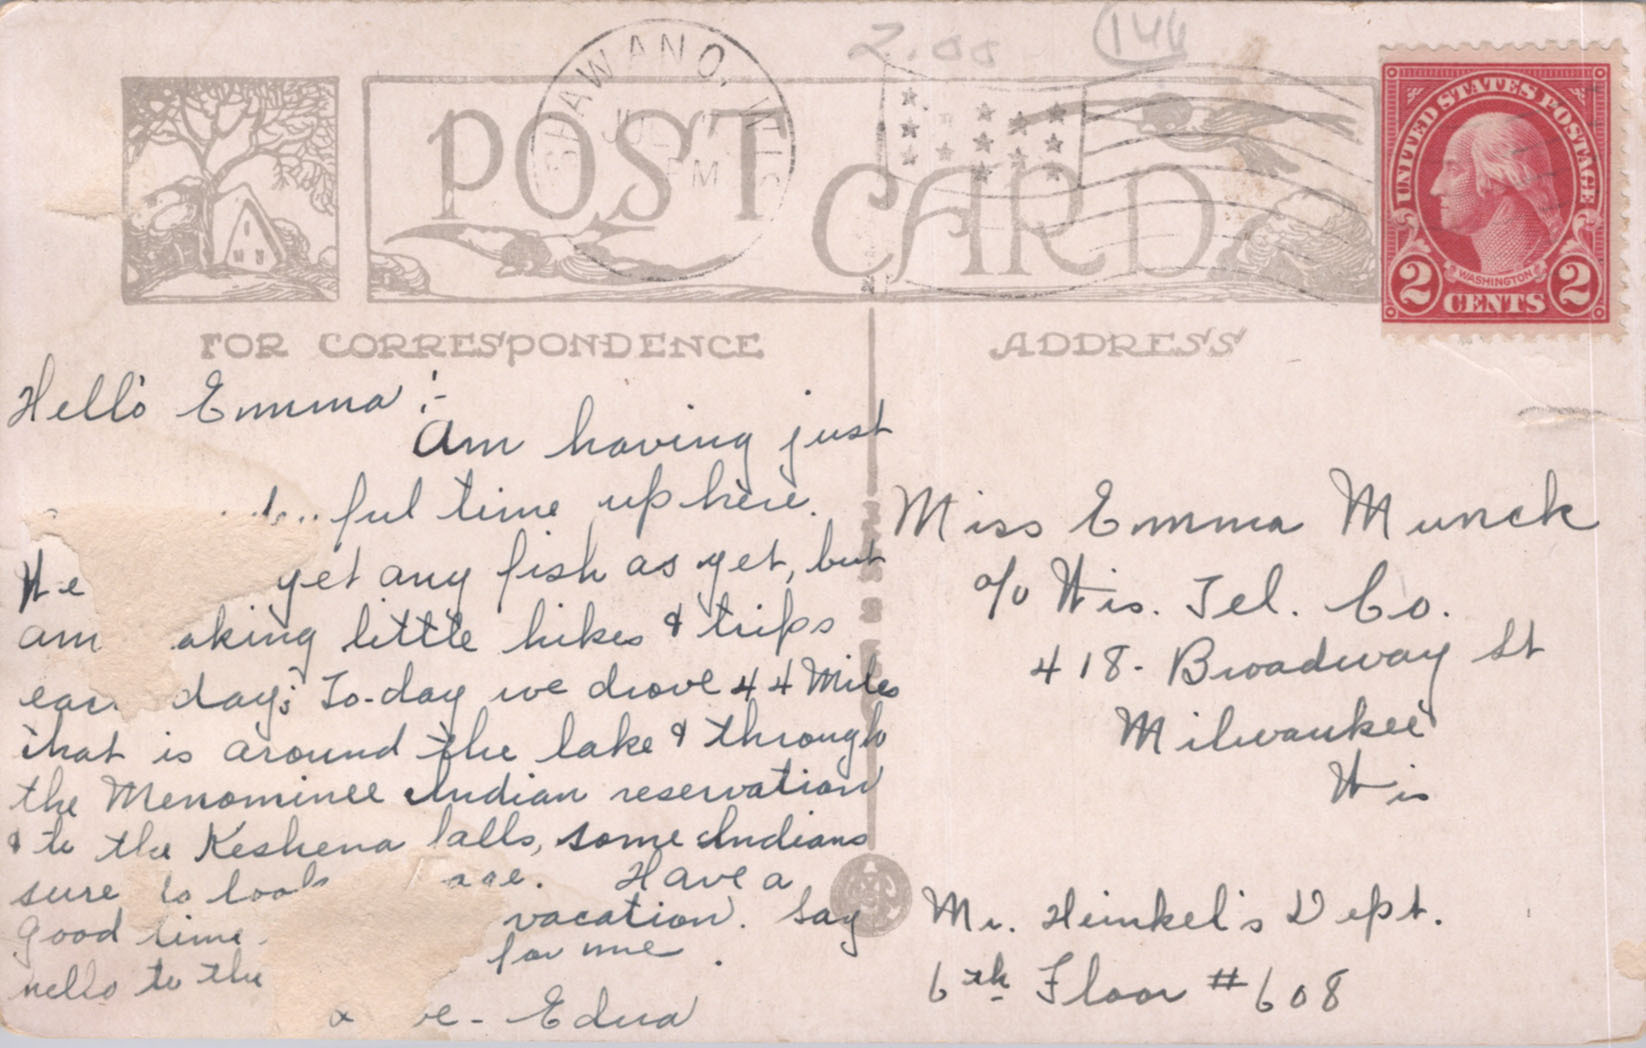 2.00
146
SHAWANO, WIS
POST CARD
UNITED STATES POSTAGE
WASHINGTON
2 CENTS 2
FOR CORRESPONDENCE
ADDRESS
Hello Emma :-
Am having just
ful time up here.
yet any fish as yet, but
am little hikes & trips
day; To-day we drove 44 Miles
that is around the lake & through
the Menominee Indian reservation
& to the Keshena falls, some Indians
sure Have a
good time vacation. Say
hello to the for me.
- Edna
Miss Emma Munck
c/o Wis. Tel. Co.
418 - Broadway St
Milwaukee
Wis
Mr. Heinkel's Dept.
6th Floor #608